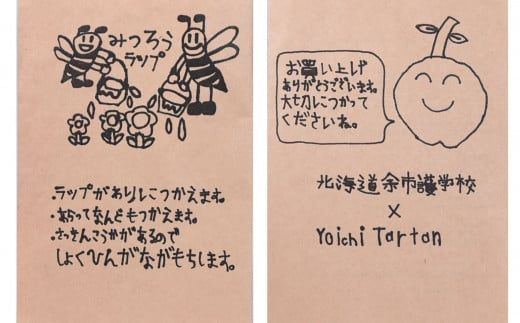 みつろう
ラップ
・ラップがわりにつかえます。
・あらってなんどもつかえます。
・さっきんこうかがあるので
しょくひんがながもちします。
お買い上げ
ありがとうございます。
大切につかって
くださいね。
北海道余市護学校
×
Yoichi Tartan